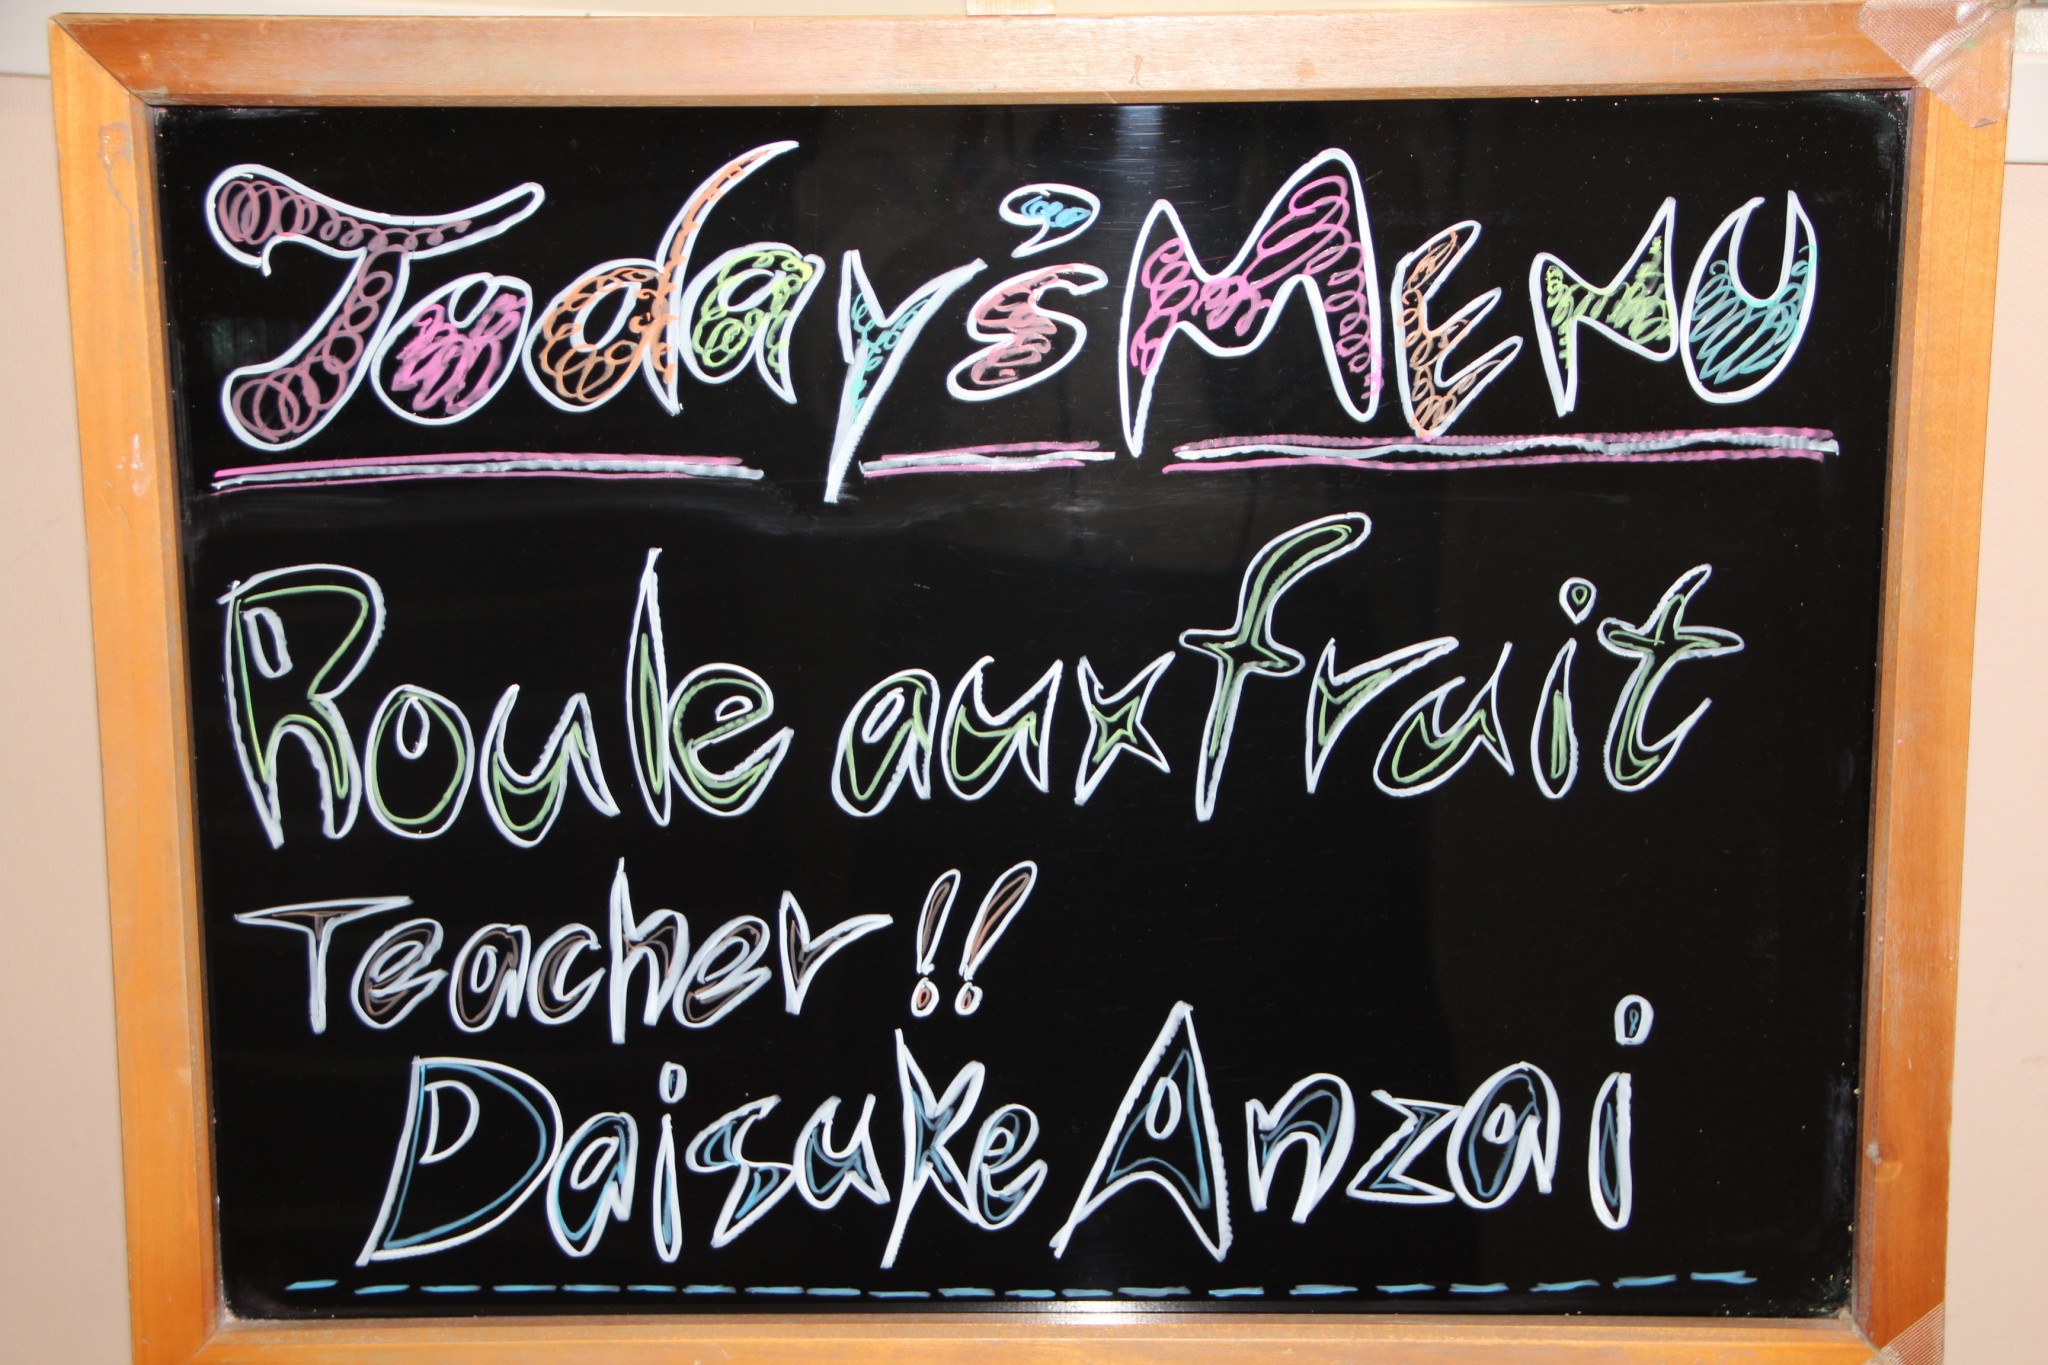 Today's MENU
Roule aux fruit
Teacher!!
Daisuke Anzai